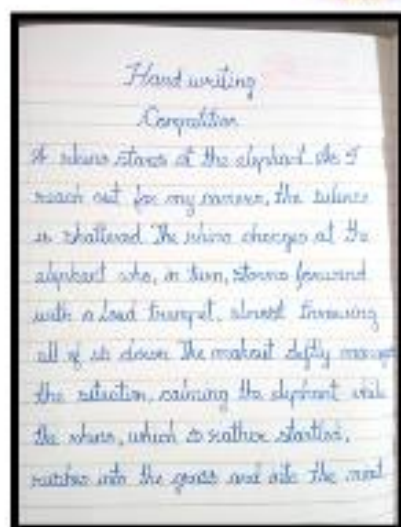 Hand writing
Competition
A rhino stares at the elephant. As I
reach out for my camera, the silence
is shattered. The rhino charges at the
elephant who, in turn, storms forward
with a loud trumpet, almost throwing
all of us down. The mahout deftly manages
the situation, calming the elephant while
the rhino, which is rather startled,
rushes into the grass and into the